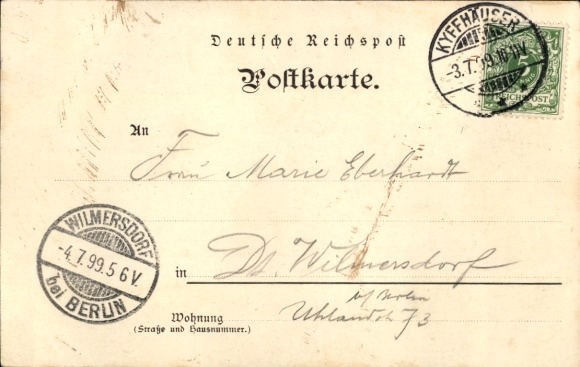 Deutsche Reichspost
Postkarte.
KYFFHÄUSER
-3.7.99.
5
REICHSPOST
An
Frau Marie Eberhardt
in Dt. Wilmersdorf
Wohnung
(Straße und Hausnummer.)
b/ Berlin
Uhlandstr 73
WILMERSDORF
-4.7.99.5 6V.
bei BERLIN